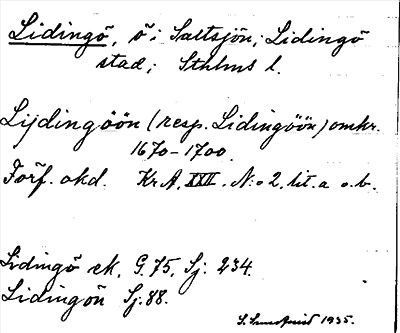 Lidingö, ö i Saltsjön, Lidingö
stad, Sthlms l.
Lijdingöön (resp. Lidingöön) omkr.
1670-1700.
Förf. okd. KrA, XXII. N:o 2, lit. a o. b.
Lidingö sk, G. 75, Sj. 234.
Lidingön Sj. 88.
S. Lundquist 1935.